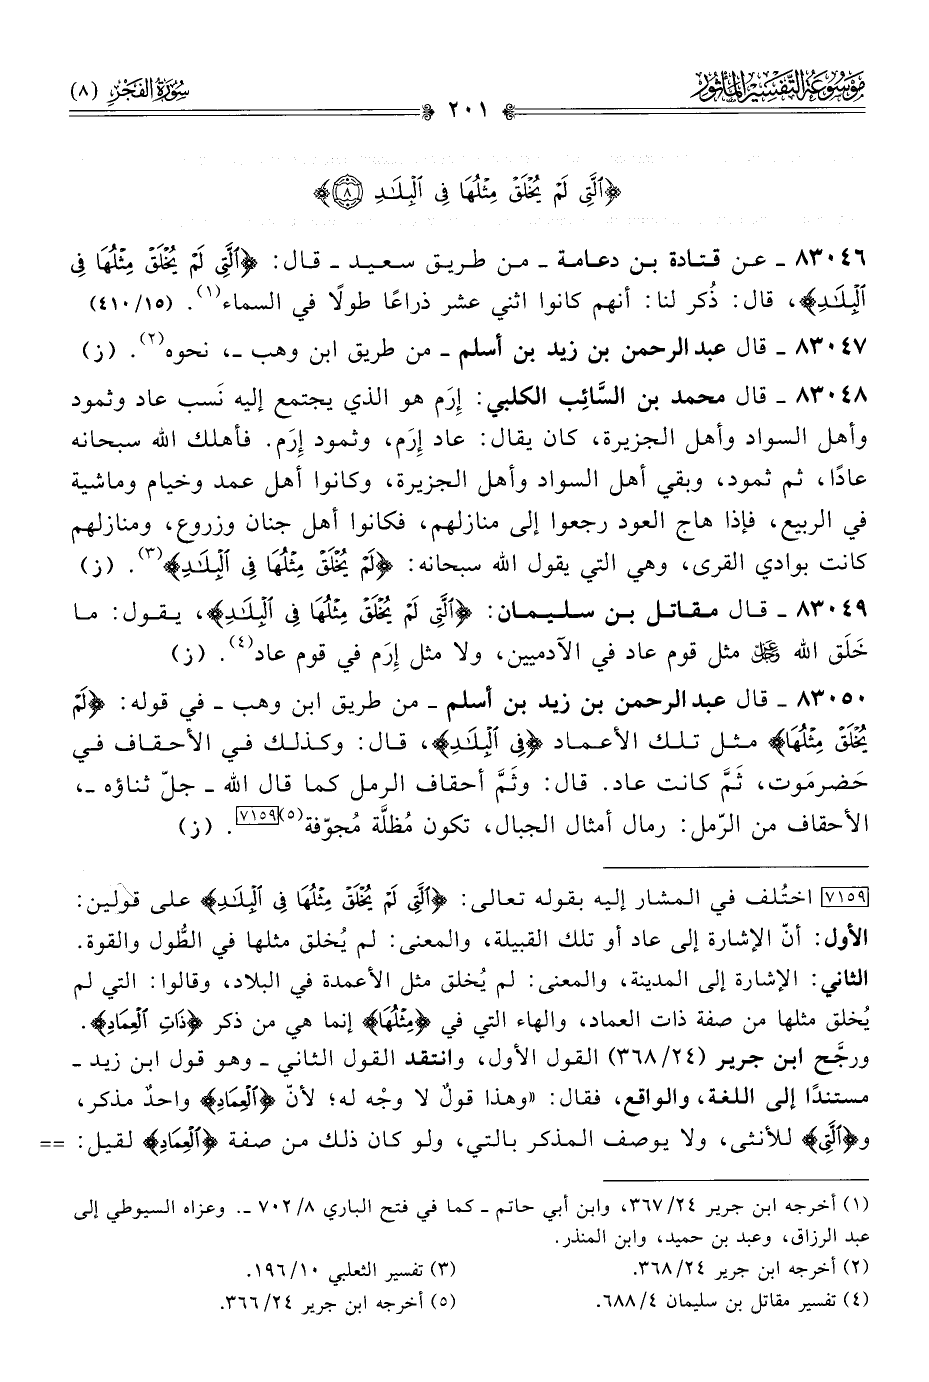 موسوعة التفسير المأثور
٢٠١
سورة الفجر (٨)
﴿ٱلَّتِي لَمۡ يُخۡلَقۡ مِثۡلُهَا فِي ٱلۡبِلَٰدِ ٨﴾
٨٣٠٤٦ ـ عن قتادة بن دعامة ـ من طريق سعيد ـ قال: ﴿ٱلَّتِي لَمۡ يُخۡلَقۡ مِثۡلُهَا فِي
ٱلۡبِلَٰدِ﴾، قال: ذُكر لنا: أنهم كانوا اثني عشر ذراعًا طولًا في السماء(١). (٤١٠/١٥)
٨٣٠٤٧ ـ قال عبد الرحمن بن زيد بن أسلم ـ من طريق ابن وهب ـ، نحوه(٢). (ز)
٨٣٠٤٨ ـ قال محمد بن السَّائب الكلبي: إرَم هو الذي يجتمع إليه نَسب عاد وثمود
وأهل السواد وأهل الجزيرة، كان يقال: عاد إرَم، وثمود إرَم. فأهلك الله سبحانه
عادًا، ثم ثمود، وبقي أهل السواد وأهل الجزيرة، وكانوا أهل عمد وخيام وماشية
في الربيع، فإذا هاج العود رجعوا إلى منازلهم، فكانوا أهل جنان وزروع، ومنازلهم
كانت بوادي القرى، وهي التي يقول الله سبحانه: ﴿لَمۡ يُخۡلَقۡ مِثۡلُهَا فِي ٱلۡبِلَٰدِ﴾(٣). (ز)
٨٣٠٤٩ ـ قال مقاتل بن سليمان: ﴿ٱلَّتِي لَمۡ يُخۡلَقۡ مِثۡلُهَا فِي ٱلۡبِلَٰدِ﴾، يقول: ما
خَلَق الله ﷻ مثل قوم عاد في الآدميين، ولا مثل إرَم في قوم عاد(٤). (ز)
٨٣٠٥٠ ـ قال عبد الرحمن بن زيد بن أسلم ـ من طريق ابن وهب ـ في قوله: ﴿لَمۡ
يُخۡلَقۡ مِثۡلُهَا﴾ مثل تلك الأعماد ﴿فِي ٱلۡبِلَٰدِ﴾، قال: وكذلك في الأحقاف في
حَضرمَوت، ثَمَّ كانت عاد. قال: وثَمَّ أحقاف الرمل كما قال الله ـ جلّ ثناؤه ـ،
الأحقاف من الرّمل: رمال أمثال الجبال، تكون مُظلَّة مُجوّفة(٥)[٧١٥٩]. (ز)
[٧١٥٩] اختُلف في المشار إليه بقوله تعالى: ﴿ٱلَّتِي لَمۡ يُخۡلَقۡ مِثۡلُهَا فِي ٱلۡبِلَٰدِ﴾ على قولين:
الأول: أنّ الإشارة إلى عاد أو تلك القبيلة، والمعنى: لم يُخلق مثلها في الطُّول والقوة.
الثاني: الإشارة إلى المدينة، والمعنى: لم يُخلق مثل الأعمدة في البلاد، وقالوا: التي لم
يُخلق مثلها من صفة ذات العماد، والهاء التي في ﴿مِثۡلُهَا﴾ إنما هي من ذكر ﴿ذَاتِ ٱلۡعِمَادِ﴾.
ورجَّح ابن جرير (٣٦٨/٢٤) القول الأول، وانتقد القول الثاني ـ وهو قول ابن زيد ـ
مستندًا إلى اللغة، والواقع، فقال: «وهذا قولٌ لا وجْه له؛ لأنّ ﴿ٱلۡعِمَادِ﴾ واحدٌ مذكر،
و﴿ٱلَّتِي﴾ للأنثى، ولا يوصف المذكر بالتي، ولو كان ذلك من صفة ﴿ٱلۡعِمَادِ﴾ لقيل: ==
(١) أخرجه ابن جرير ٣٦٧/٢٤، وابن أبي حاتم ـ كما في فتح الباري ٧٠٢/٨ ـ. وعزاه السيوطي إلى
عبد الرزاق، وعبد بن حميد، وابن المنذر.
(٢) أخرجه ابن جرير ٣٦٨/٢٤.
(٣) تفسير الثعلبي ١٩٦/١٠.
(٤) تفسير مقاتل بن سليمان ٦٨٨/٤.
(٥) أخرجه ابن جرير ٣٦٦/٢٤.